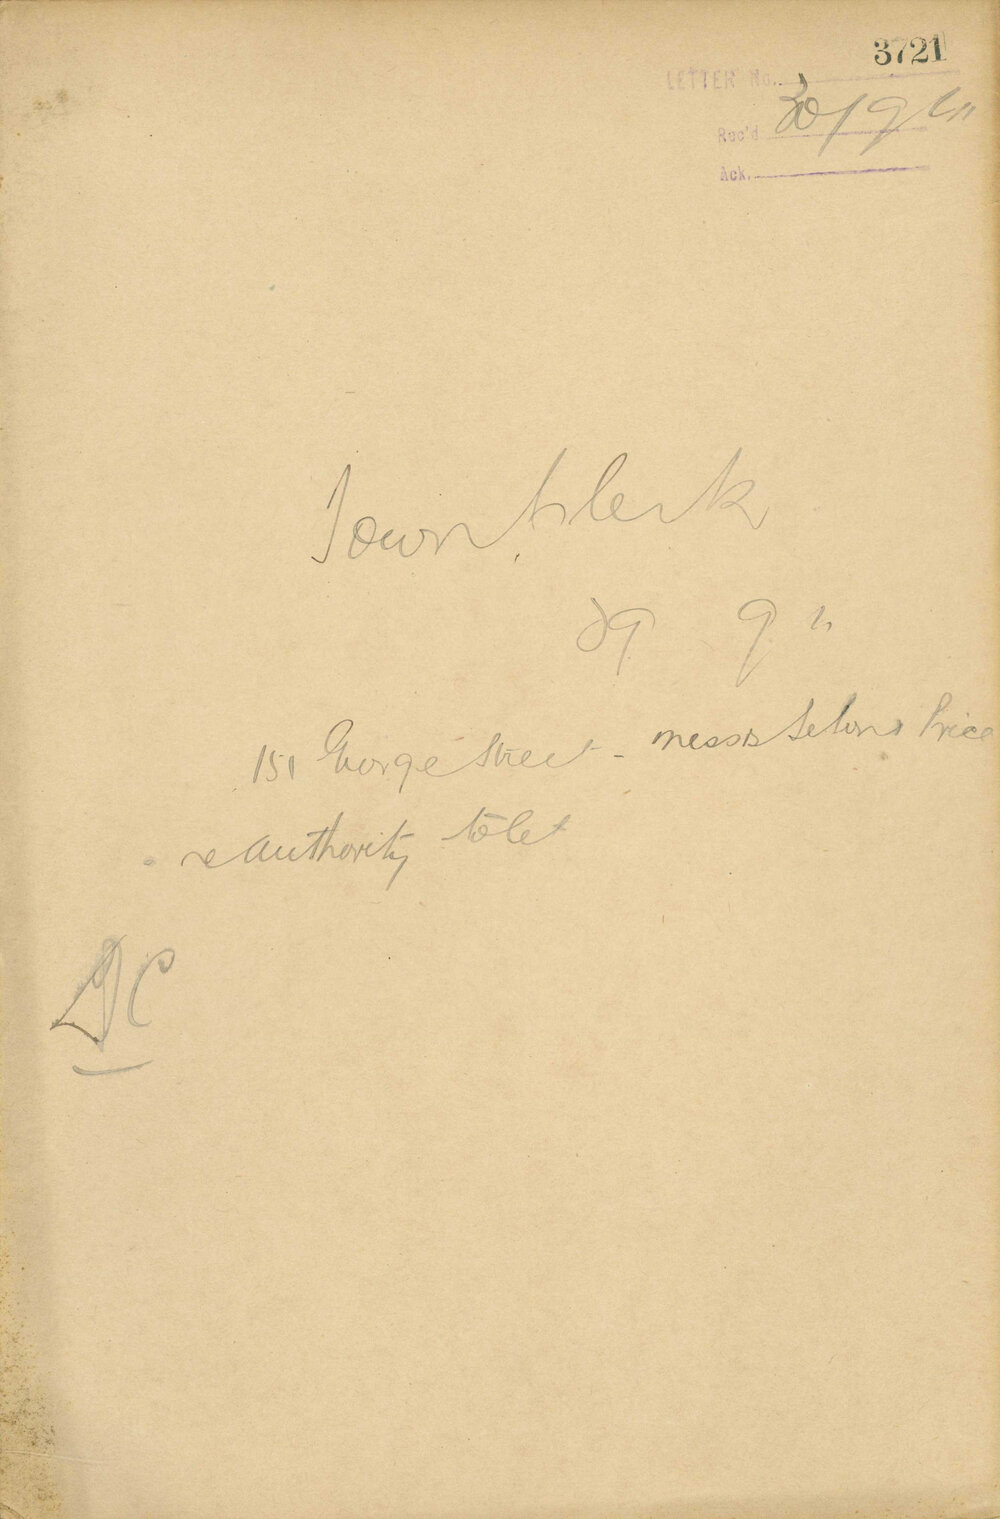 3721
LETTER No.
Rec'd 30/9/11
Ack.
Town Clerk
29 9 11
151 George Street - Messrs Price
re authority to let